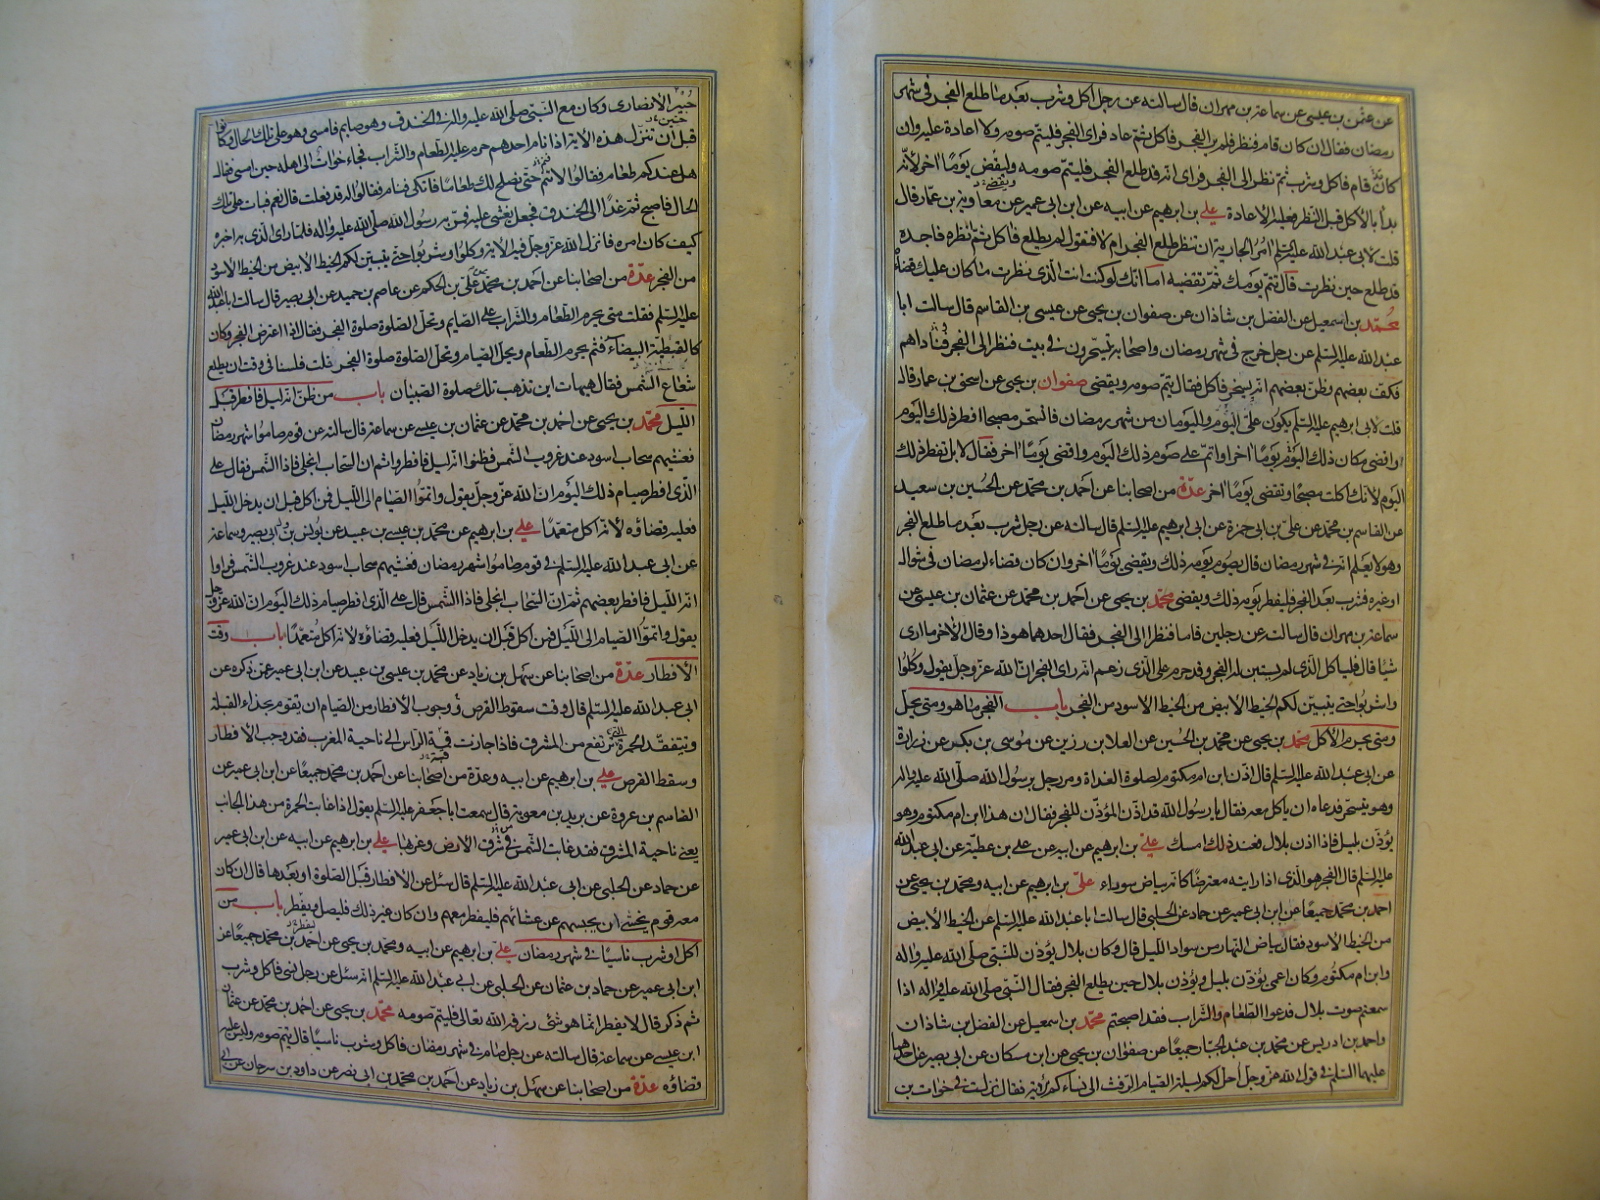 عن عثمن بن عيسى عن سماعة بن مهران قال سالته عن رجل اكل وشرب بعد ما طلع الفجر فى شهر
رمضان فقال ان كان قام فنظر فلم ير الفجر فاكل ثم عاد فراى الفجر فليتم صومه ولا اعادة عليه وان
كان قام فاكل وشرب ثم نظر الى الفجر فراى انه قد طلع الفجر فليتم صومه وليقض يومًا اخر لانّه
بدأ بالاكل قبل النظر فعليه الاعادة علي بن ابرهيم عن ابيه عن ابن ابى عمير عن معاوية بن عمّار قال
قلت لابى عبد الله عليه السّلم امر الجارية ان تنظر طلع الفجر ام لا فتقول لم يطلع فاكل ثم نظره فاجده
قد طلع حين نظرت قال تتم يومك ثم تقضيه اما انك لو كنت انت الذى نظرت ما كان عليك قضاؤه
محمّد بن اسمعيل عن الفضل بن شاذان عن صفوان بن يحيى عن عيسى بن القاسم قال سالت ابا
عبد الله عليه السّلم عن رجل خرج فى شهر رمضان واصحابه يتسحرون فى بيت فنظر الى الفجر فناداهم
فكف بعضهم وظنّ بعضهم انه يسخر فاكل فقال يتم صومه ويقضى صفوان بن يحيى عن اسحق بن عمار قال
قلت لابى ابرهيم عليه السّلم يكون علىّ اليوم واليومان من شهر رمضان فاتسحر مصبحا افطر ذلك اليوم
واقضى مكان ذلك اليوم يومًا اخر او اتم على صوم ذلك اليوم واقضى يومًا اخر فقال لا بل تفطر ذلك
اليوم لانك اكلت مصبحًا وتقضى يومًا اخر عدّة من اصحابنا عن احمد بن محمد عن الحسين بن سعيد
عن القاسم بن محمد عن علىّ بن ابى حمزة عن ابى ابرهيم عليه السّلم قال سالته عن رجل شرب بعد ما طلع الفجر
وهو لا يعلم انه فى شهر رمضان قال يصوم يومه ذلك ويقضى يومًا اخر وان كان قضاء لرمضان فى شوال
او غيره فشرب بعد الفجر فليفطر يومه ذلك ويقضى محمّد بن يحيى عن احمد بن محمد عن عثمان بن عيسى عن
سماعة بن مهران قال سالته عن رجلين قاما فنظرا الى الفجر فقال احدهما هو ذا وقال الاخر ما ارى
شيًا قال فلياكل الذى لم يستبن له الفجر وقد حرم على الذى زعم انه راى الفجر ان الله عز وجل يقول وكلوا
واشربوا حتى يتبين لكم الخيط الابيض من الخيط الاسود من الفجر باب الفجر ما هو ومتى يحل
ومتى يحرم الاكل محمد بن يحيى عن محمد بن الحسين عن العلا بن رزين عن موسى بن بكر عن زرارة
عن ابى عبد الله عليه السّلم قال اذّن ابن ام مكتوم لصلوة الغداة ومر رجل برسول الله صلّى الله عليه واله
وهو يتسحر فدعاه ان ياكل معه فقال يا رسول الله قد اذّن المؤذّن للفجر فقال ان هذا ابن ام مكتوم وهو
يؤذّن بليل فاذا اذن بلال فعند ذلك امسك علي بن ابرهيم عن ابيه عن على بن عطية عن ابى عبد الله
عليه السّلم قال الفجر هو الذى اذا رايته معترضًا كانه بياض سوراء علىّ بن ابرهيم عن ابيه ومحمد بن يحيى عن
احمد بن محمد جميعًا عن ابن ابى عمير عن حماد عن الحلبى قال سالت ابا عبد الله عليه السّلم عن الخيط الابيض
من الخيط الاسود فقال بياض النهار من سواد الليل قال وكان بلال يؤذن للنبى صلّى الله عليه واله
وابن ام مكتوم وكان اعمى يؤذن بليل ويؤذن بلال حين يطلع الفجر فقال النّبى صلى الله عليه واله اذا
سمعتم صوت بلال فدعوا الطّعام والشّراب فقد اصبحتم محمّد بن اسمعيل عن الفضل بن شاذان
واحمد بن ادريس عن محمد بن عبد الجبار جميعًا عن صفوان بن يحيى عن ابن مسكان عن ابى بصير عن احدهما
عليهما السّلم فى قول الله عز وجل احل لكم ليلة الصيام الرفث الى نسائكم الاية فقال نزلت فى خوات بن
جبير الانصارى وكان مع النّبى صلّى الله عليه واله فى الخندق وهو صايم فامسى وهو على تلك الحال وكانوا
قبل ان تنزل هذه الاية اذا نام احدهم حرم عليه الطّعام والشّراب فجاء خوات الى اهله حين امسى فقال
هل عندكم طعام فقالوا لا تنم حتى نصلح لك طعامًا فاتكى فنام فقالوا له قد فعلت قال نعم فبات على تلك
الحال فاصبح ثم غدا الى الخندق فجعل يغشى عليه فمر به رسول الله صلّى الله عليه واله فلما راى الذى به اخبره
كيف كان امره فانزل الله عز وجل فيه الاية وكلوا واشربوا حتى يتبين لكم الخيط الابيض من الخيط الاسود
من الفجر عدّة من اصحابنا عن احمد بن محمد عن على بن الحكم عن عاصم بن حميد عن ابى بصير قال سالت ابا عبد الله
عليه السّلم فقلت متى يحرم الطّعام والشّراب على الصايم وتحل الصّلوة صلوة الفجر فقال اذا اعترض الفجر وكان
كالقبطية البيضاء فثم يحرم الطّعام ويحلّ الصّيام وتحل الصّلوة صلوة الفجر قلت فلسنا فى وقت ان يطلع
شعاع الشمس فقال هيهات اين تذهب تلك صلوة الصبيان باب من ظنّ انه ليل فافطر قبل
اللّيل محمّد بن يحيى عن احمد بن محمد عن عثمان بن عيسى عن سماعة قال سالته عن قوم صاموا شهر رمضان
فغشيهم سحاب اسود عند غروب الشمس فظنوا انه ليل فافطروا ثم ان السّحاب انجلى فاذا الشّمس فقال على
الّذى افطر صيام ذلك اليوم ان الله عز وجل يقول واتمّوا الصّيام الى اللّيل فمن اكل قبل ان يدخل اللّيل
فعليه قضاؤه لانه اكل متعمّدًا علي بن ابرهيم عن محمد بن عيسى بن عبيد عن يونس عن ابى بصير وسماعة
عن ابى عبد الله عليه السّلم فى قوم صاموا شهر رمضان فغشيهم سحاب اسود عند غروب الشّمس فراوا
انه اللّيل فافطر بعضهم ثم ان السّحاب انجلى فاذا الشّمس قال على الّذى افطر صيام ذلك اليوم ان الله عز وجل
يقول واتموا الصيام الى اللّيل فمن اكل قبل ان يدخل اللّيل فعليه قضاؤه لانه اكل متعمّدًا باب وقت
الافطار عدّة من اصحابنا عن سهل بن زياد عن محمد بن عيسى بن عبيد عن ابن ابى عمير عمّن ذكره عن
ابى عبد الله عليه السّلم قال وقت سقوط القرص ووجوب الافطار من الصّيام ان تقوم بحذاء القبلة
وتتفقّد الحمرة التى ترتفع من المشرق فاذا جازت قمة الرّاس الى ناحية المغرب فقد وجب الافطار
وسقط القرص علي بن ابرهيم عن ابيه وعدة من اصحابنا عن احمد بن محمد جميعًا عن ابن ابى عمير عن
القاسم بن عروة عن بريد بن معوية قال سمعت ابا جعفر عليه السّلم يقول اذا غابت الحمرة من هذا الجانب
يعنى ناحية المشرق فقد غابت الشّمس فى شرق الارض وغربها علي بن ابرهيم عن ابيه عن ابن ابى عمير
عن حماد عن الحلبى عن ابى عبد الله عليه السّلم قال سئل عن الافطار قبل الصّلوة او بعدها قال ان كان
معه قوم يخشى ان يحبسهم عن عشائهم فليفطر معهم وان كان غير ذلك فليصل ويفطر باب من
اكل او شرب ناسيًا فى شهر رمضان علي بن ابرهيم عن ابيه ومحمد بن يحيى عن احمد بن محمد جميعًا عن
ابن ابى عمير عن حماد بن عثمان عن الحلبى عن ابى عبد الله عليه السّلم انه سئل عن رجل نسى فاكل وشرب
ثم ذكر قال لا يفطر انما هو شئ رزقه الله تعالى فليتم صومه محمّد بن يحيى عن احمد بن محمد عن عثمان
ابن عيسى عن سماعة قال سالته عن رجل صام فى شهر رمضان فاكل وشرب ناسيًا قال يتم صومه وليس عليه
قضاؤه عدّة من اصحابنا عن سهل بن زياد عن احمد بن محمد بن ابى نصر عن داود بن سرحان عن ابى